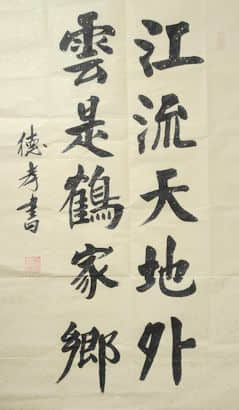 江流天地外
雲是鶴家鄉
德孝書